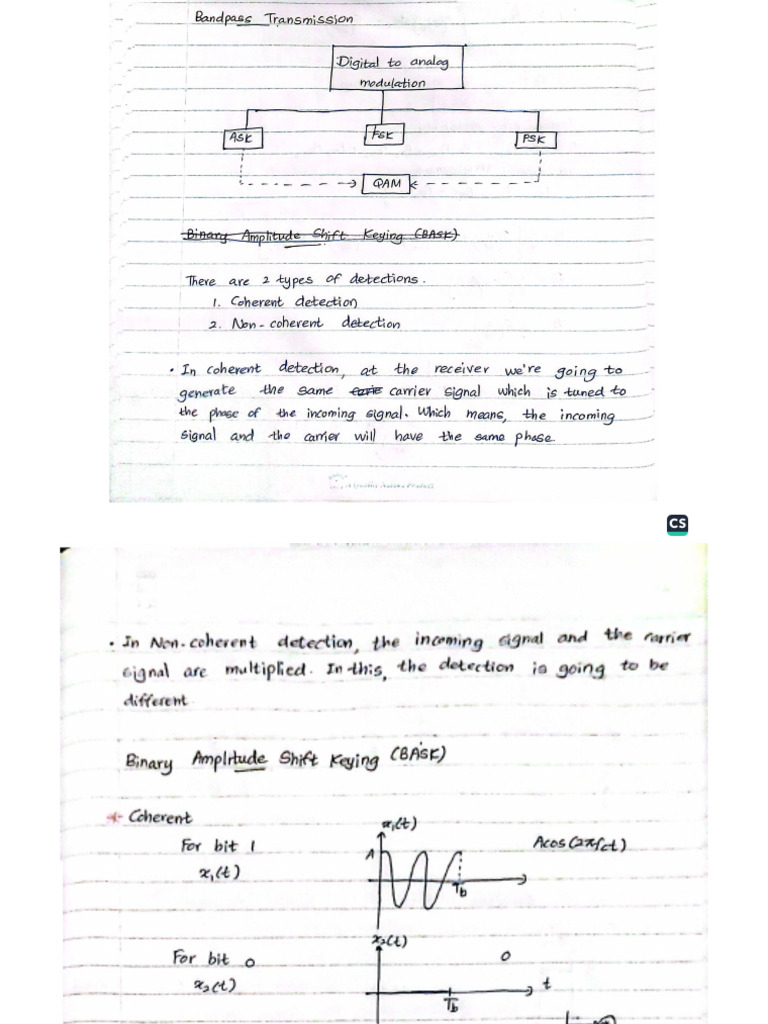 Bandpass Transmission
Digital to analog
modulation
ASK
FSK
PSK
QAM
Binary Amplitude Shift Keying (BASK)
There are 2 types of detections.
1. Coherent detection
2. Non-coherent detection
• In coherent detection, at the receiver we're going to
generate the same carrier signal which is tuned to
the phase of the incoming signal. Which means, the incoming
signal and the carrier will have the same phase
CS
• In Non-coherent detection, the incoming signal and the carrier
signal are multiplied. In this, the detection is going to be
different
Binary Amplitude Shift Keying (BASK)
* Coherent
x₁(t)
For bit 1
A
Acos(2πfct)
x₁(t)
Tb
x₂(t)
For bit 0
0
x₂(t)
t
Tb